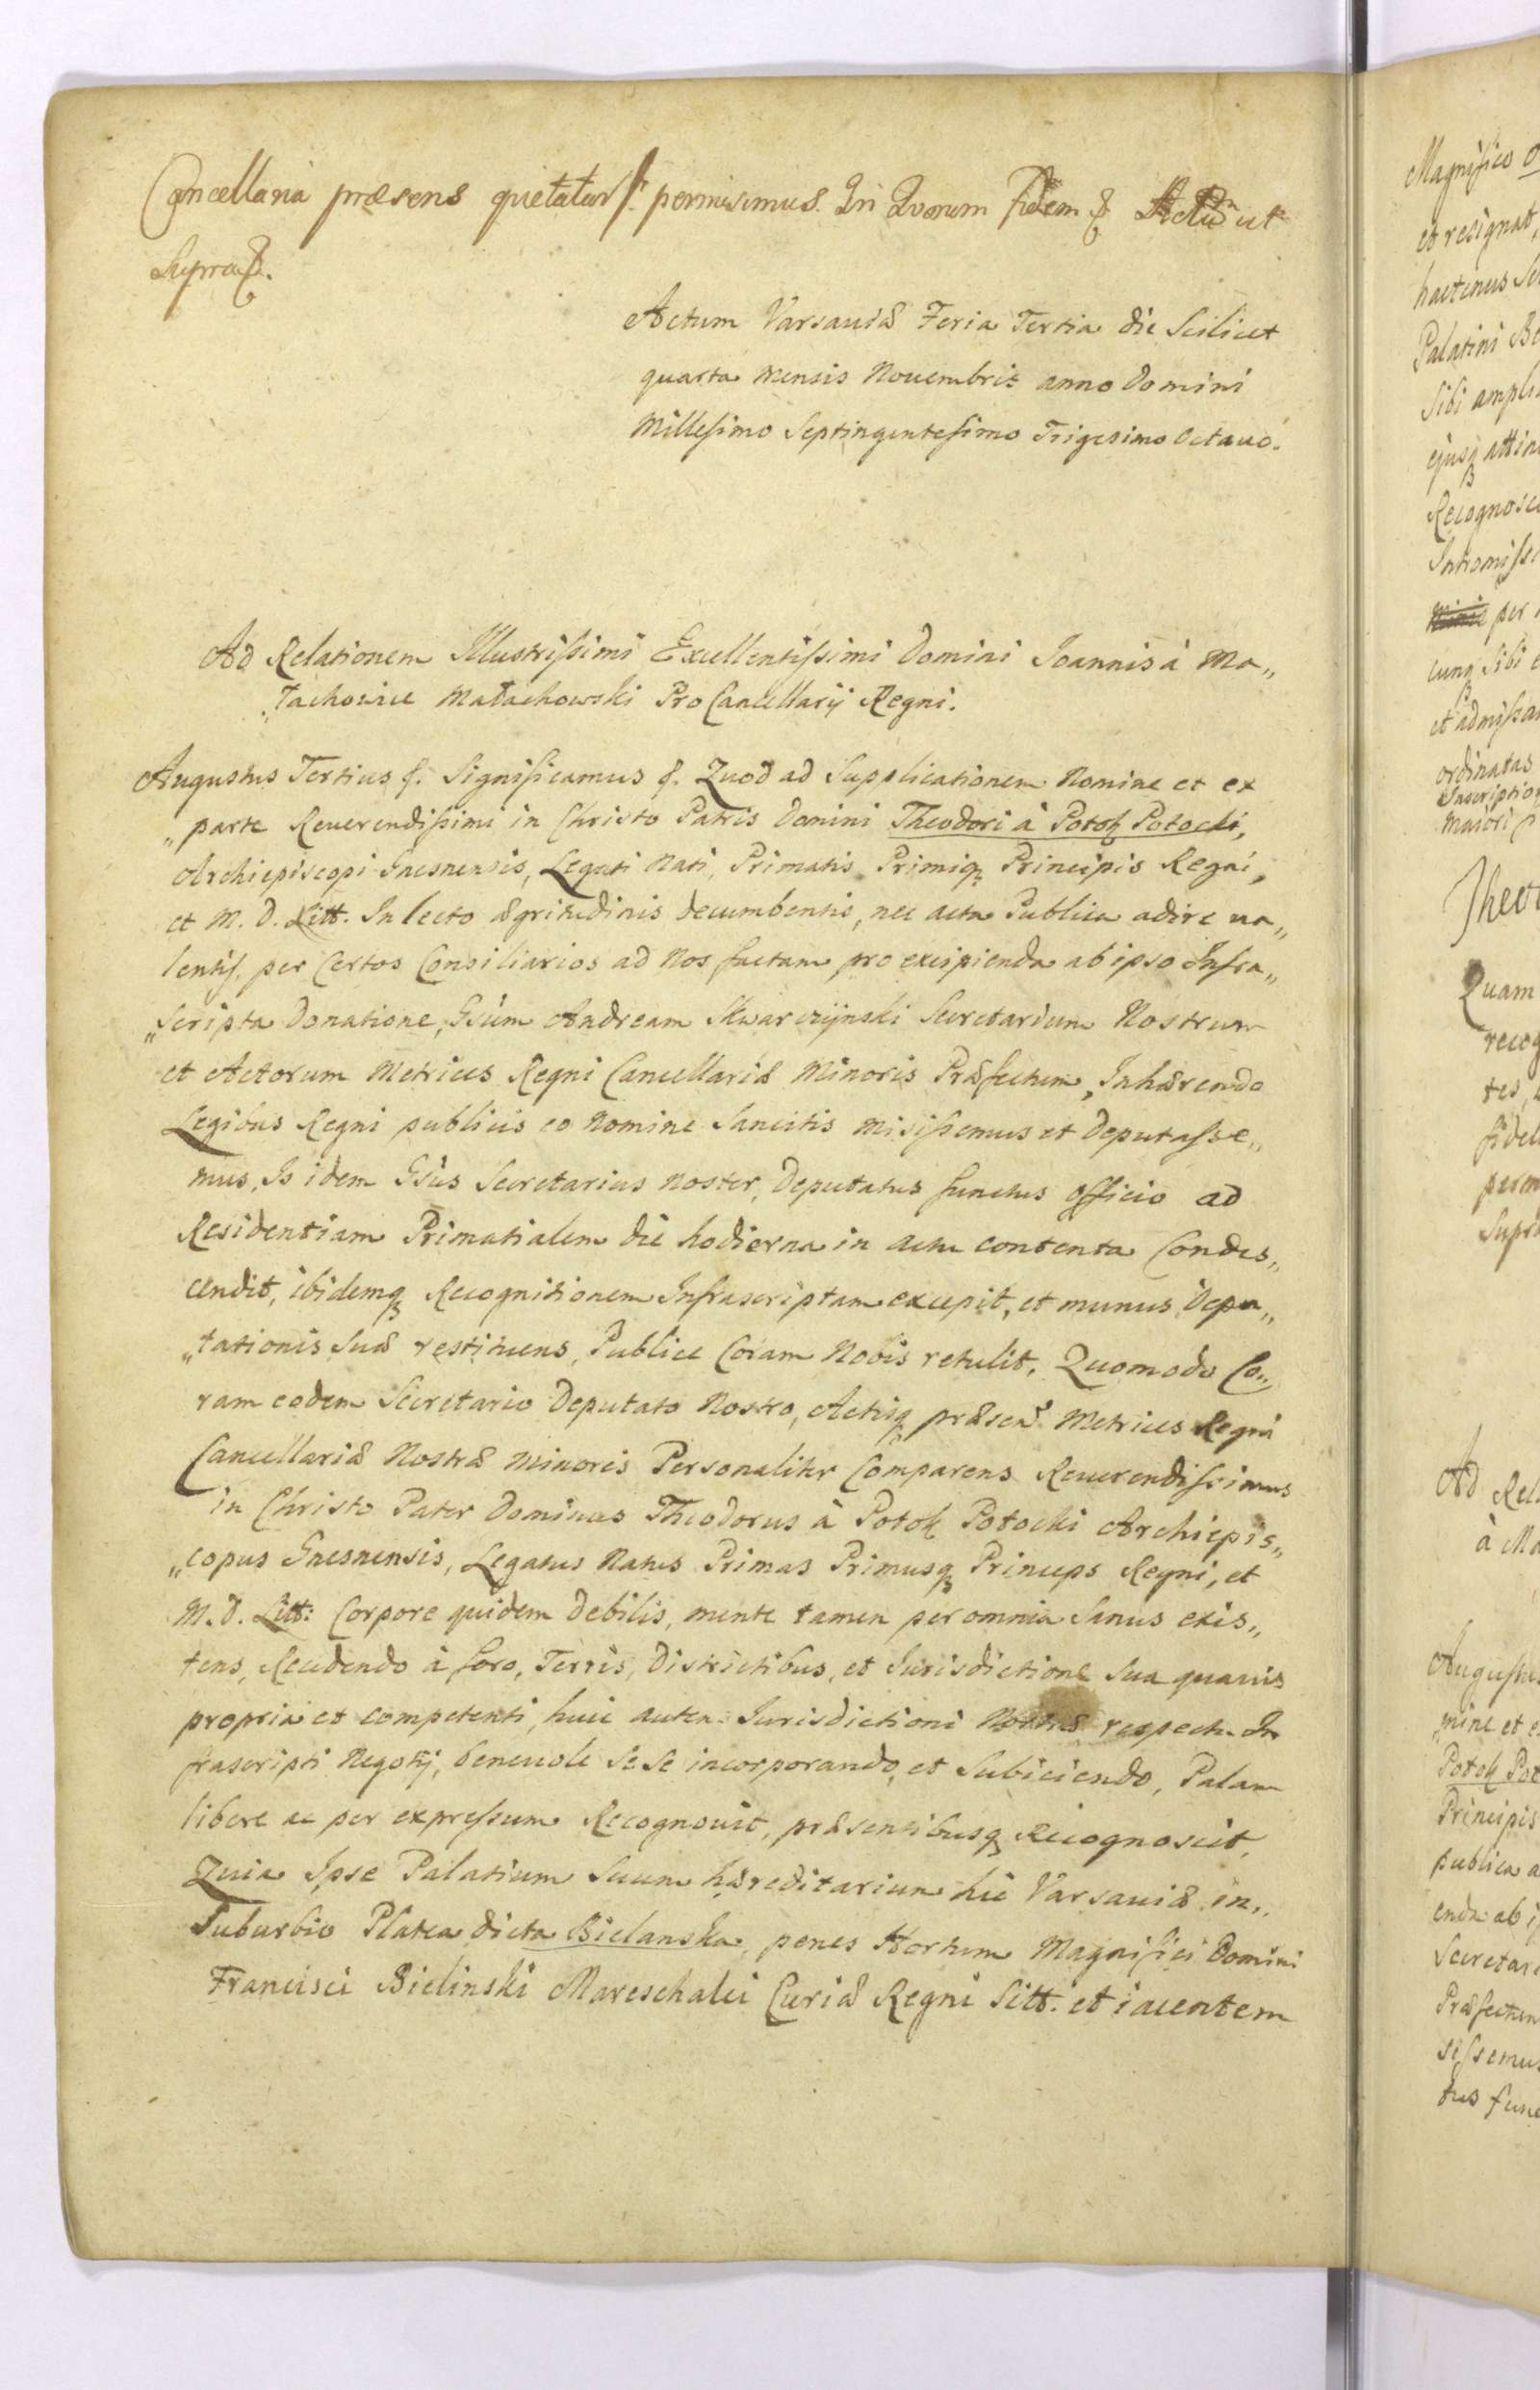 Cancellaria præsens quietatur permisimus. In Quorum fidem &. Actu ut
Supra &.
Actum Varsaviæ Feria Tertia die Scilicet
quarta Mensis Novembris anno Domini
Millesimo Septingentesimo Trigesimo Octavo.
Ad Relationem Illustrissimi Excellentissimi Domini Joannis à Ma„
„łachowice Małachowski Pro Cancellarij Regni.
Augustus Tertius &. Significamus &. Quod ad Supplicationem Nomine et ex
„parte Reverendissimi in Christo Patris Domini Theodori à Potok Potocki,
Archiepiscopi Gnesnensis, Legati Nati, Primatis Primiq; Principis Regni,
et M. D. Litt. In lecto ægritudinis decumbentis, nec acta Publica adire va„
lentis, per Certos Consiliarios ad Nos factam pro excipienda ab ipso Infra„
„scripta Donatione, Gsūm Andream Skwarczijnski Secretarium Nostrum
et Actorum Metrices Regni Cancellariæ Minoris Præfectum, Inhærendo
Legibus Regni publicis eo Nomine Sancitis misissemus et Deputasse„
mus, Is idem Gsūs Secretarius Noster, Deputatus functus officio ad
Residentiam Primatialem die hodierna in actu contenta Condes„
cendit, ibidemq; Recognitionem Infrascriptam excepit, et munus Depu„
„tationis Suæ restituens, Publice Coram Nobis retulit. Quomodo Co„
ram eodem Secretario Deputato Nostro, Actisq; præsen. Metrices Regni
Cancellariæ Nostræ Minoris Personaliter Comparens Reverendissimus
in Christo Pater Dominus Theodorus à Potok Potocki Archiepis„
„copus Gnesnensis, Legatus Natus Primas Primusq; Princeps Regni, et
M. D. Litt: Corpore quidem Debilis, mente tamen per omnia Sanus exis„
tens, Recedendo à foro, Terris, Districtibus, et Jurisdictione Sua quavis
propria et competenti, huic autem Jurisdictioni Nostræ respectu In
frascripti Negotij, benevole se se incorporando, et Subiciendo, Palam
libere ac per expressum Recognovit, præsentibusq; Recognoscit,
Quia Ipse Palatium Suum hæreditarium hic Varsaviæ in„
Suburbio Platea dicta Bielanska, penes Hortum Magnifici Domini
Francisci Bielinski Mareschalci Curiæ Regni Sitt. et iacentem
Magnifico
et resignat,
hactenus
Palatini
Sibi
ejusq;
Recognosc
per
cunq; sibi
ordinatas
Maiori
Quam
Supra
Ad Rel
à Ma
Augustus
„mine et e
Potok Pot
Principis
publica a
enda ab i
Secretar
Præfectum
sissemus
tus func